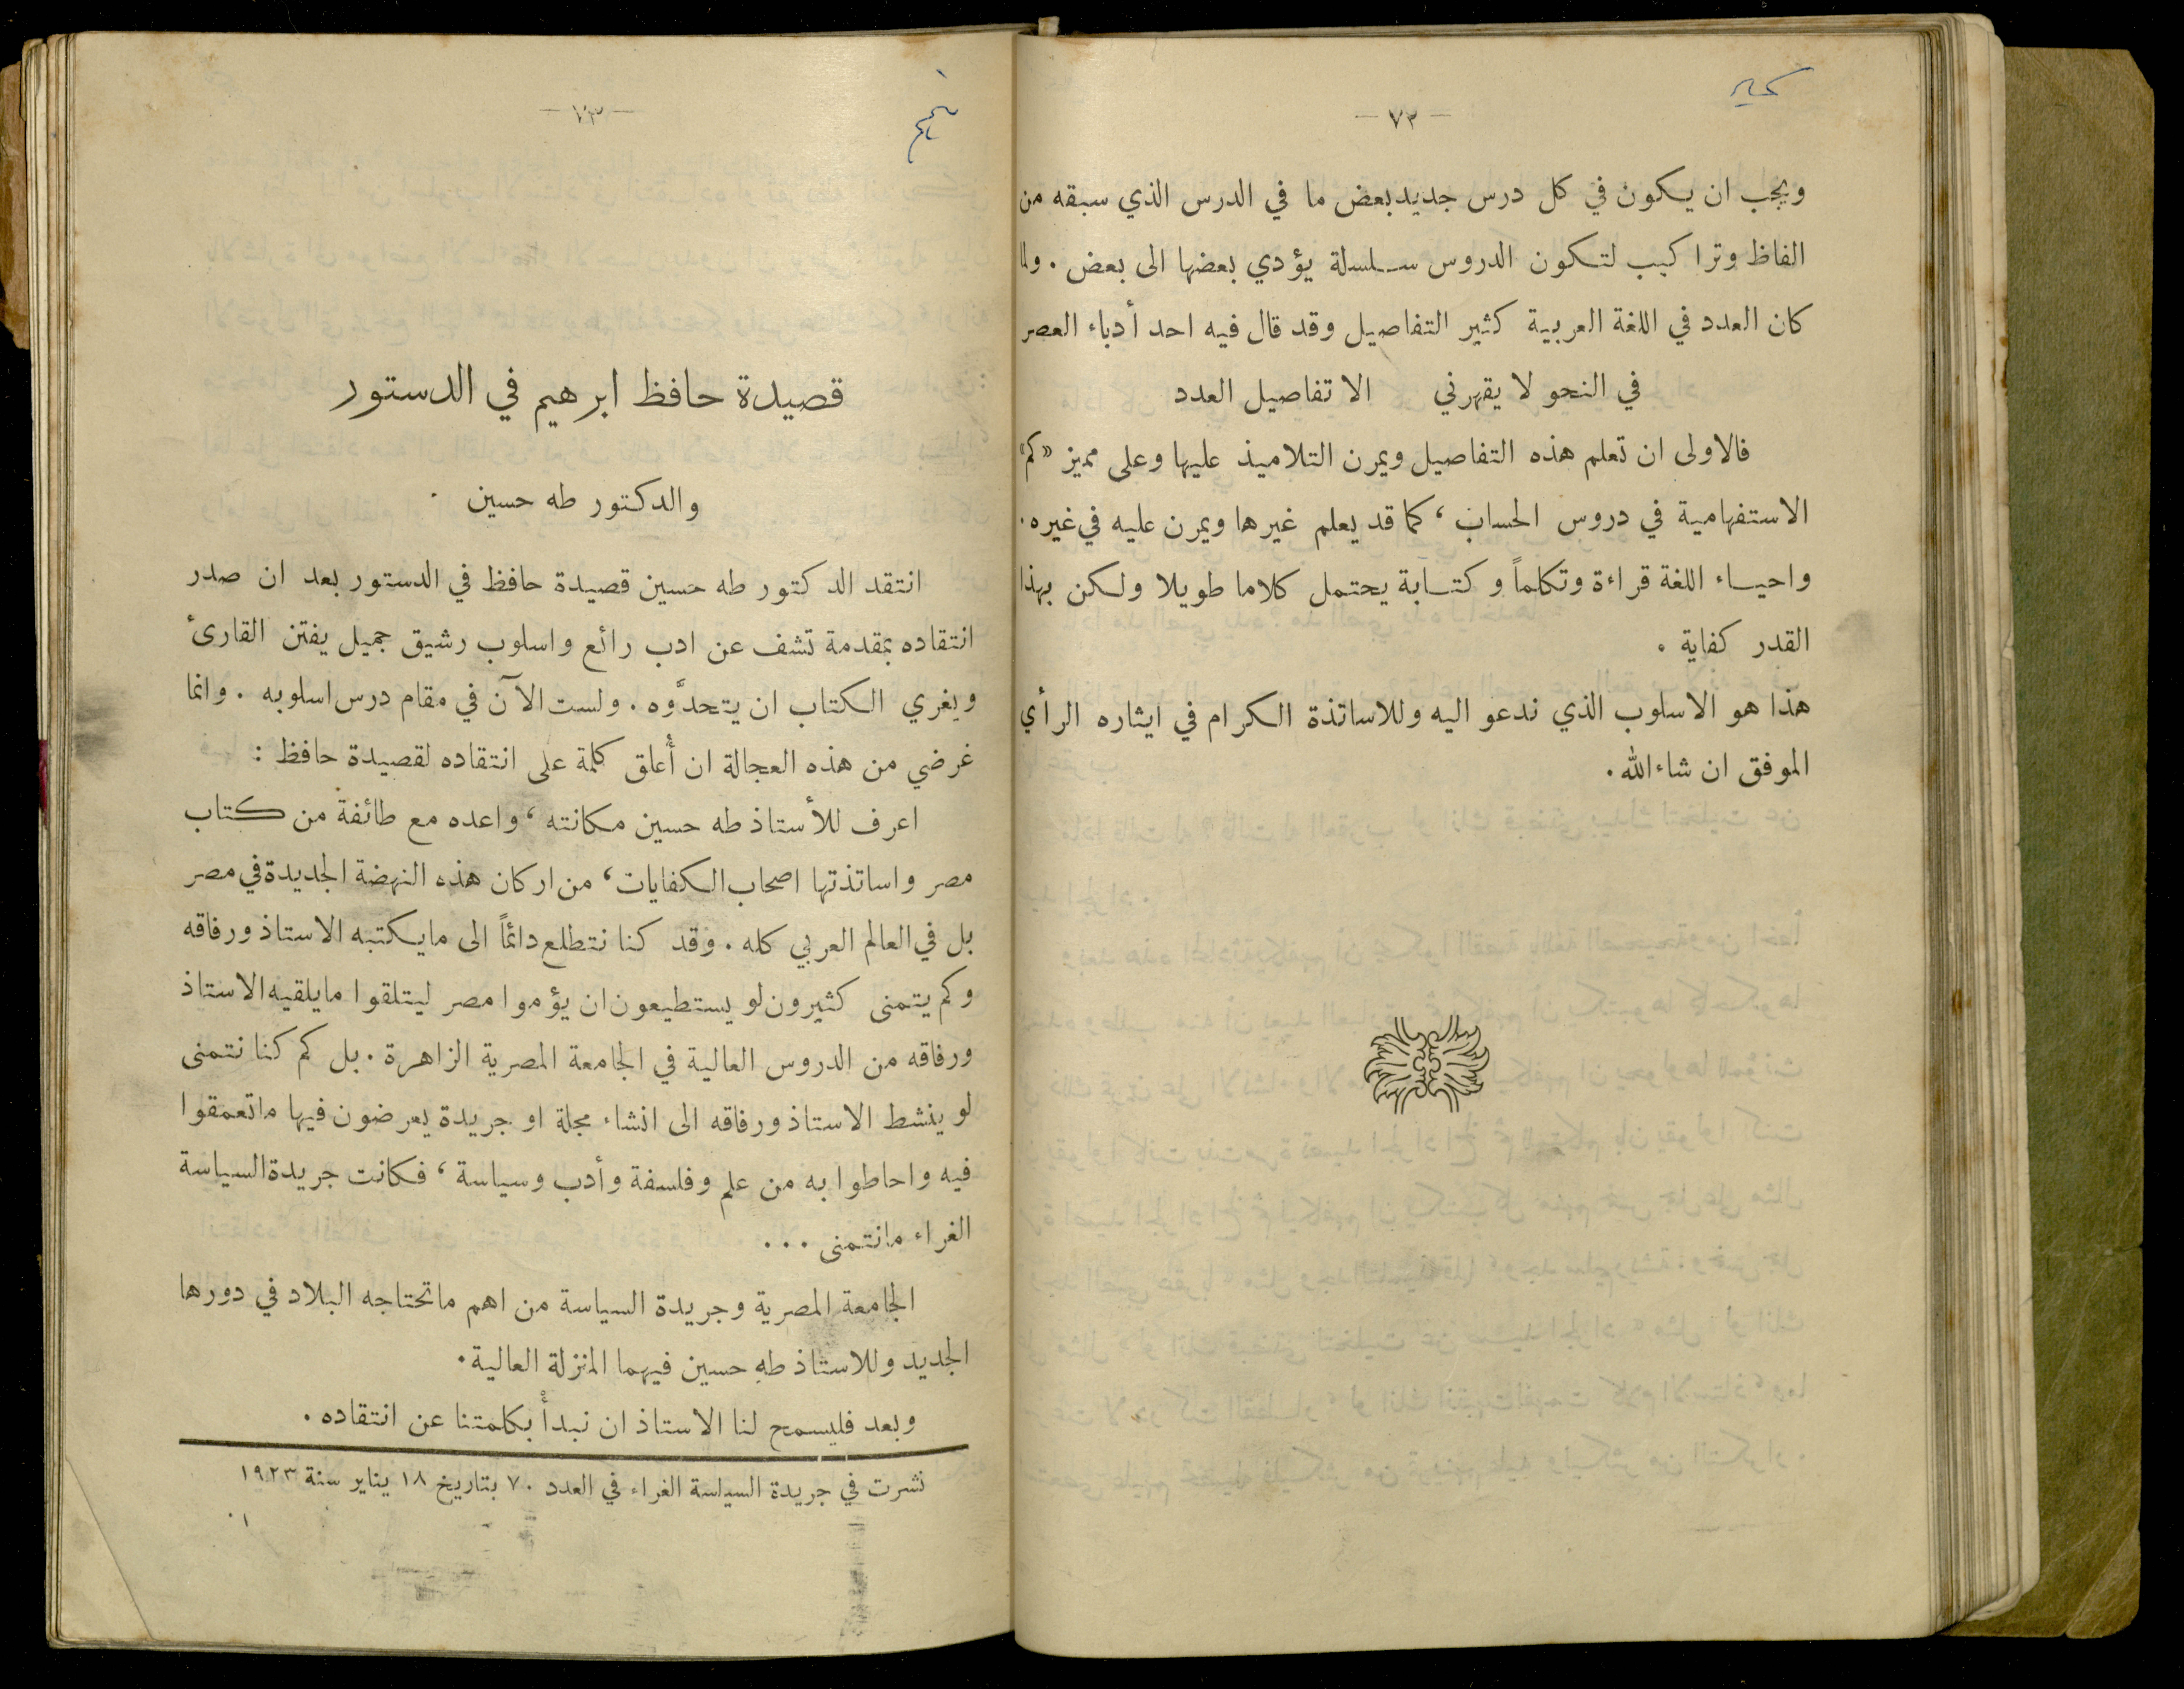 — ٧٢ —
ويجب ان يكون في كل درس جديد بعض ما في الدرس الذي سبقه من
الفاظ وتراكيب لتكون الدروس سلسلة يؤدي بعضها الى بعض . ولما
كان العدد في اللغة العربية كثير التفاصيل وقد قال فيه احد أدباء العصر
في النحو لا يقهرني الا تفاصيل العدد
فالاولى ان تعلم هذه التفاصيل ويمرن التلاميذ عليها وعلى مميز «كم»
الاستفهامية في دروس الحساب ، كما قد يعلم غيرها ويمرن عليه في غيره .
واحياء اللغة قراءة وتكلماً وكتابة يحتمل كلاما طويلا ولكن بهذا
القدر كفاية .
هذا هو الاسلوب الذي ندعو اليه وللاساتذة الكرام في ايثاره الرأي
الموفق ان شاء الله .
— ٧٣ —
قصيدة حافظ ابرهيم في الدستور
والدكتور طه حسين .
انتقد الدكتور طه حسين قصيدة حافظ في الدستور بعد ان صدر
انتقاده بمقدمة تشف عن ادب رائع واسلوب رشيق جميل يفتن القارئ
ويغري الكتاب ان يتحدَّوه . ولست الآن في مقام درس اسلوبه . وانما
غرضي من هذه العجالة ان أعلق كلمة على انتقاده لقصيدة حافظ :
اعرف للأستاذ طه حسين مكانته ، واعده مع طائفة من كتاب
مصر واساتذتها اصحاب الكفايات ، من اركان هذه النهضة الجديدة في مصر
بل في العالم العربي كله . وقد كنا نتطلع دائماً الى مايكتبه الاستاذ ورفاقه
وكم يتمنى كثيرون لو يستطيعون ان يؤموا مصر ليتلقوا مايلقيه الاستاذ
ورفاقه من الدروس العالية في الجامعة المصرية الزاهرة . بل كم كنا نتمنى
لو ينشط الاستاذ ورفاقه الى انشاء مجلة او جريدة يعرضون فيها ماتعمقوا
فيه واحاطوا به من علم وفلسفة وأدب وسياسة ، فكانت جريدة السياسة
الغراء مانتمنى ...
الجامعة المصرية وجريدة السياسة من اهم ماتحتاجه البلاد في دورها
الجديد وللاستاذ طه حسين فيهما المنزلة العالية .
وبعد فليسمح لنا الاستاذ ان نبدأ بكلمتنا عن انتقاده .
نشرت في جريدة السياسة الغراء في العدد ٧٠ بتاريخ ١٨ يناير سنة ١٩٢٣